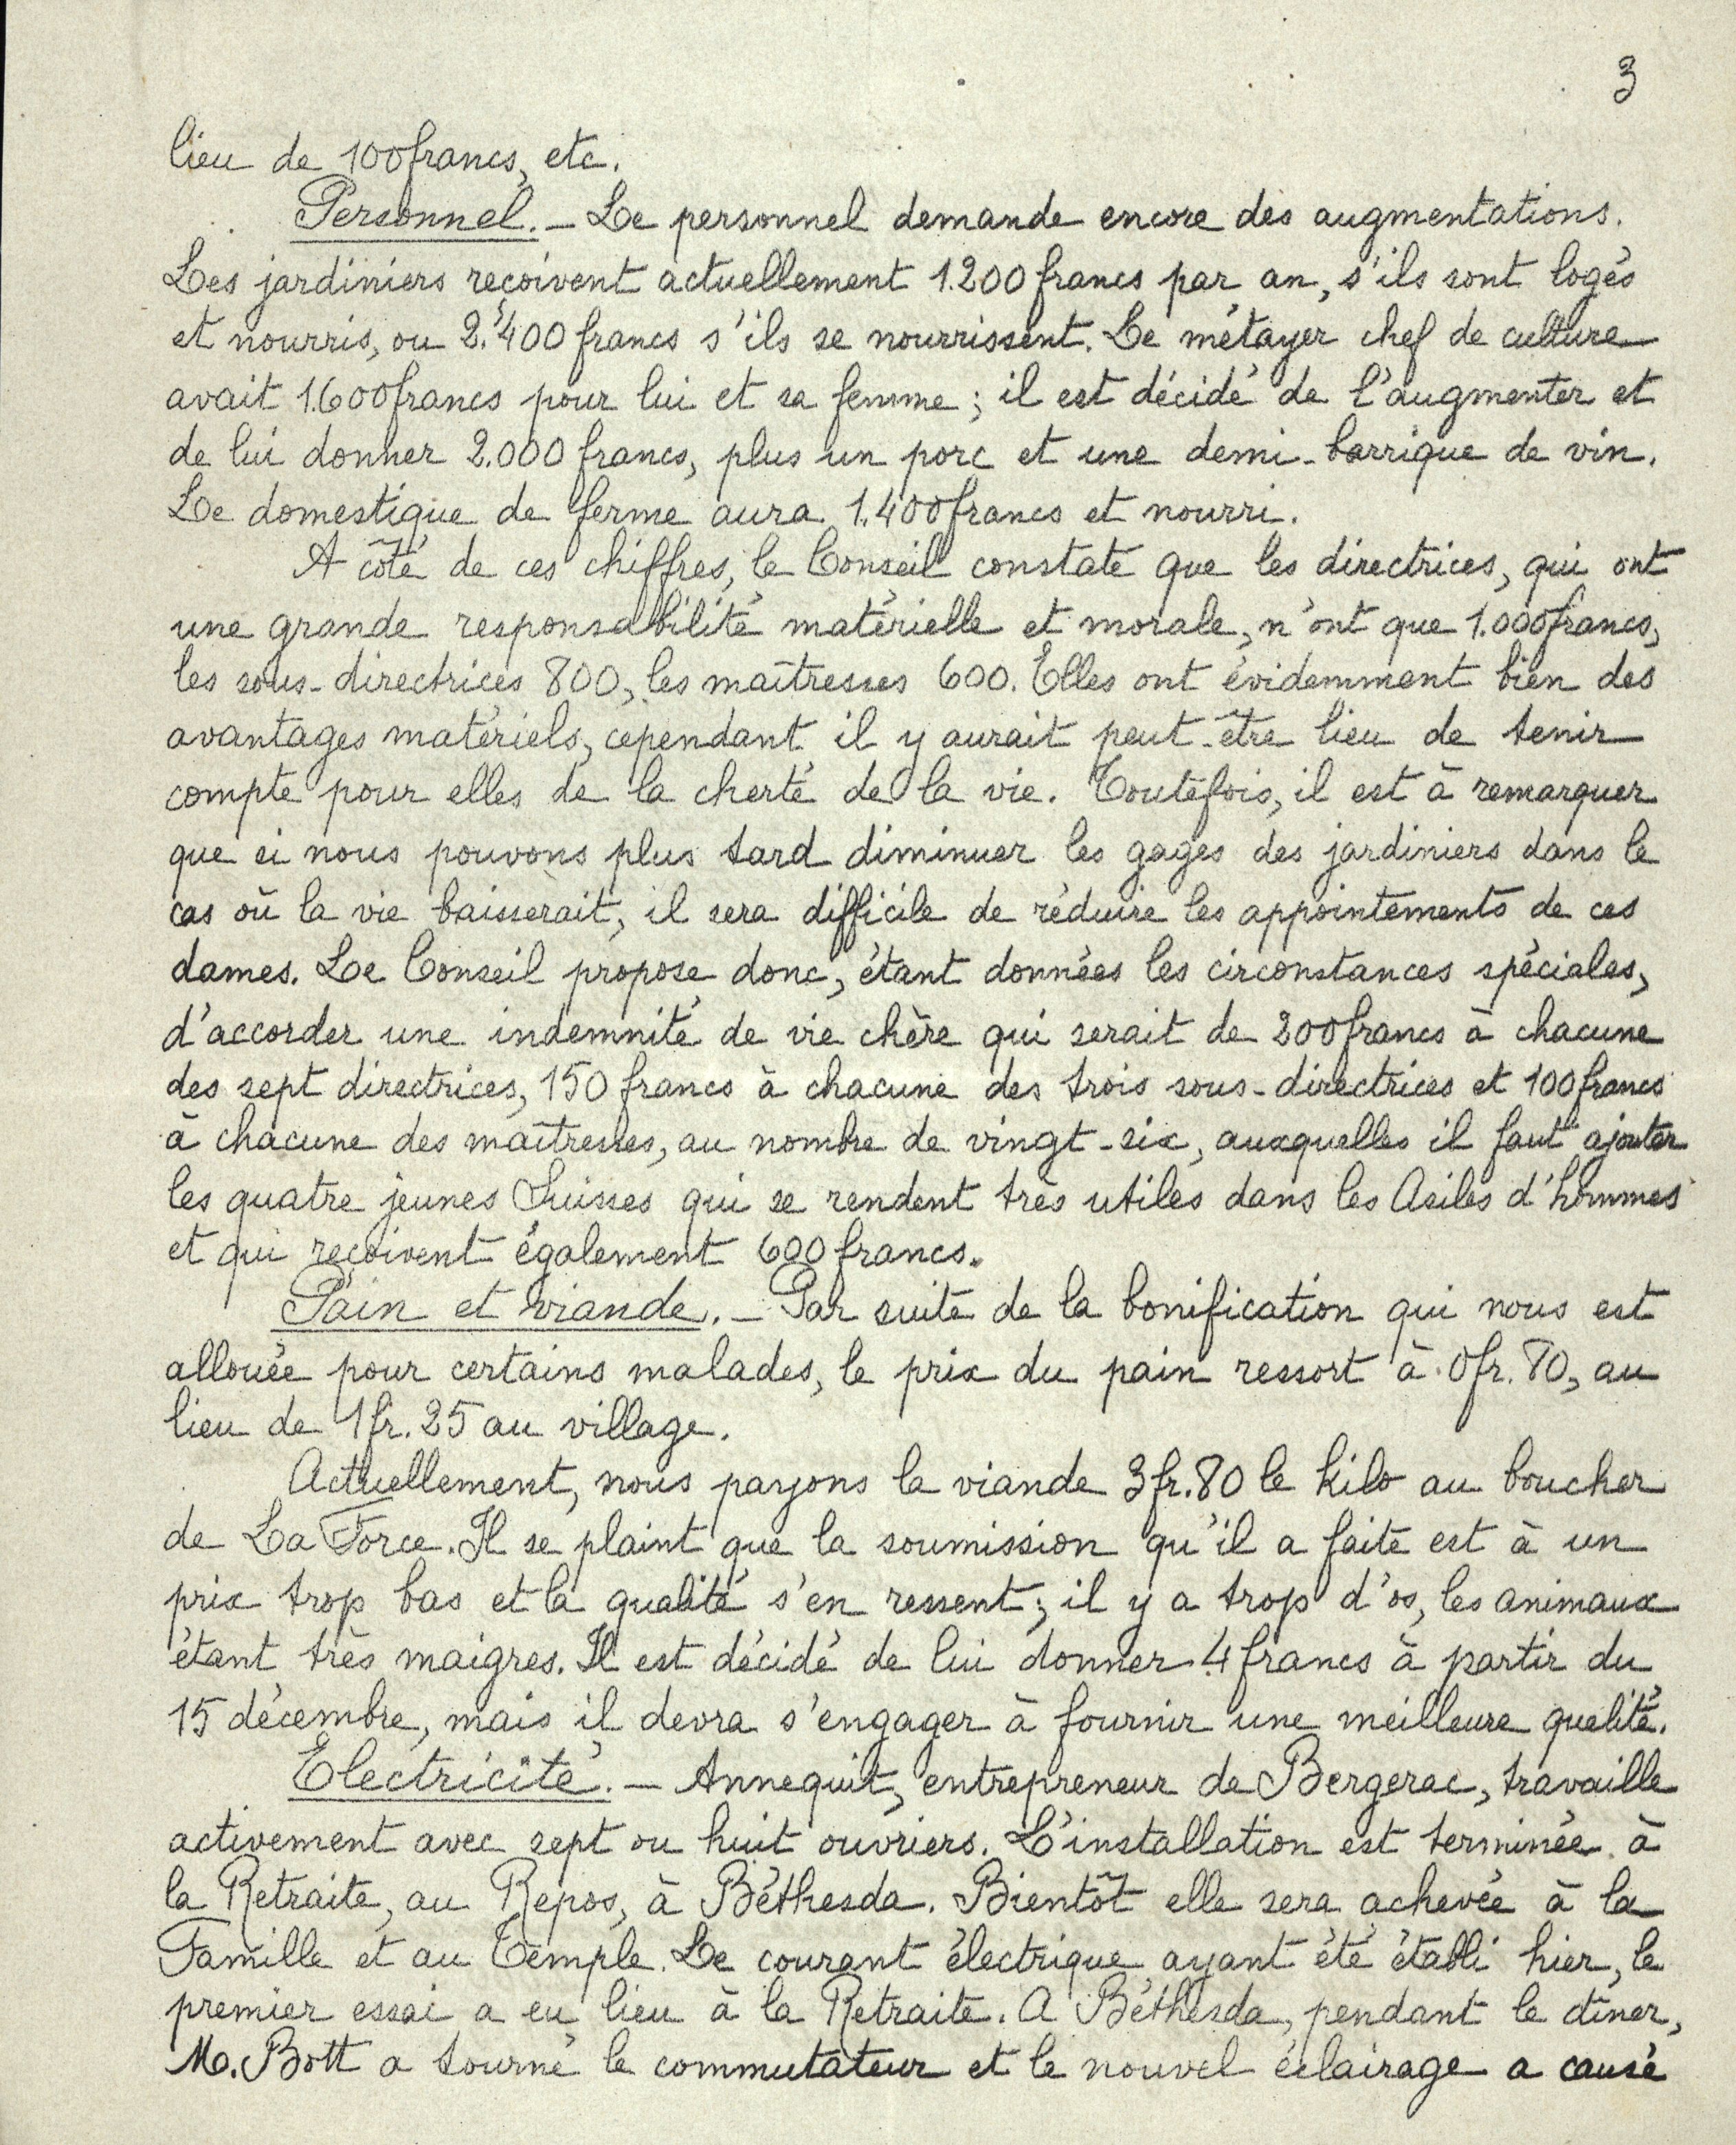 3
lieu de 100 francs, etc.
Personnel. _ Le personnel demande encore des augmentations.
Les jardiniers reçoivent actuellement 1.200 francs par an, s'ils sont logés
et nourris, ou 2.400 francs s'ils se nourrissent. Le métayer chef de culture
avait 1.600 francs pour lui et sa femme ; il est décidé de l'augmenter et
de lui donner 2.000 francs, plus un porc et une demi-barrique de vin.
Le domestique de ferme aura 1.400 francs et nourri.
A côté de ces chiffres, le Conseil constate que les directrices, qui ont
une grande responsabilité matérielle et morale, n'ont que 1.000 francs,
les sous-directrices 800, les maîtresses 600. Elles ont évidemment bien des
avantages matériels, cependant il y aurait peut-être lieu de tenir
compte pour elles de la cherté de la vie. Toutefois, il est à remarquer
que si nous pouvons plus tard diminuer les gages des jardiniers dans le
cas où la vie baisserait, il sera difficile de réduire les appointements de ces
dames. Le Conseil propose donc, étant données les circonstances spéciales,
d'accorder une indemnité de vie chère qui serait de 200 francs à chacune
des sept directrices, 150 francs à chacune des trois sous-directrices et 100 francs
à chacune des maîtresses, au nombre de vingt-six, auxquelles il faut ajouter
les quatre jeunes Suisses qui se rendent très utiles dans les Asiles d'hommes
et qui reçoivent également 600 francs.
Pain et viande. _ Par suite de la bonification qui nous est
allouée pour certains malades, le prix du pain ressort à 0 fr. 80, au
lieu de 1 fr. 25 au village.
Actuellement, nous payons la viande 3 fr. 80 le kilo au boucher
de La Force. Il se plaint que la soumission qu'il a faite est à un
prix trop bas et la qualité s'en ressent ; il y a trop d'os, les animaux
étant très maigres. Il est décidé de lui donner 4 francs à partir du
15 décembre, mais il devra s'engager à fournir une meilleure qualité.
Electricité. _ Annequit, entrepreneur de Bergerac, travaille
activement avec sept ou huit ouvriers. L'installation est terminée à
la Retraite, au Repos, à Béthesda. Bientôt elle sera achevée à la
Famille et au Temple. Le courant électrique ayant été établi hier, le
premier essai a eu lieu à la Retraite. A Béthesda, pendant le dîner,
M. Bott a tourné le commutateur et le nouvel éclairage a causé